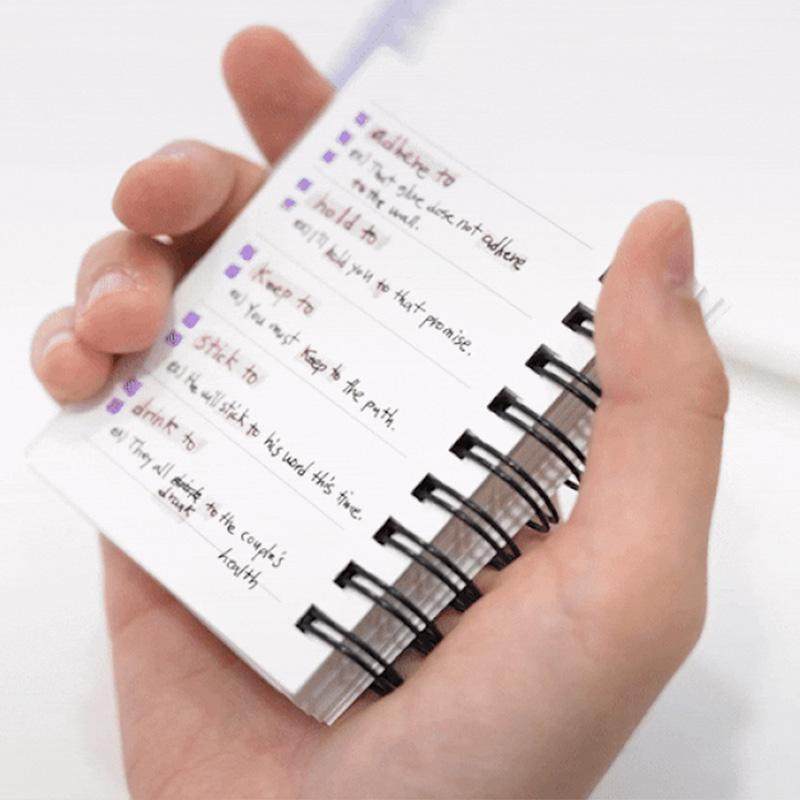 adhere to
ex) That glue dose not adhere
to the wall.
hold to
ex) I'll hold you to that promise.
Keep to
ex) You must Keep to the path.
stick to
ex) He will stick to his word this time.
drink to
ex) They all to the couple's
drank
health